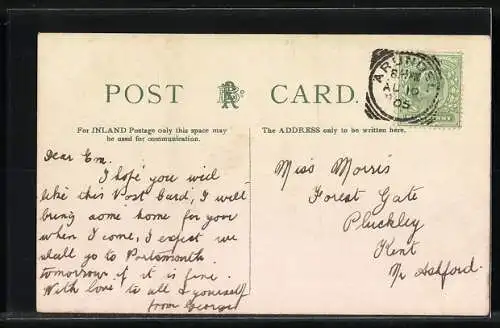 POST CARD.
For INLAND Postage only this space may
be used for communication.
The ADDRESS only to be written here.
ARUNDEL
AU 10
05
Dear Em.
I hope you will
like this Post Card, I will
bring some home for you
when I come, I expect we
shall go to Portsmouth
tomorrow if it is fine.
With love to all & yourself
from George
Miss Morris
Forest Gate
Pluckley
Kent
Nr Ashford.